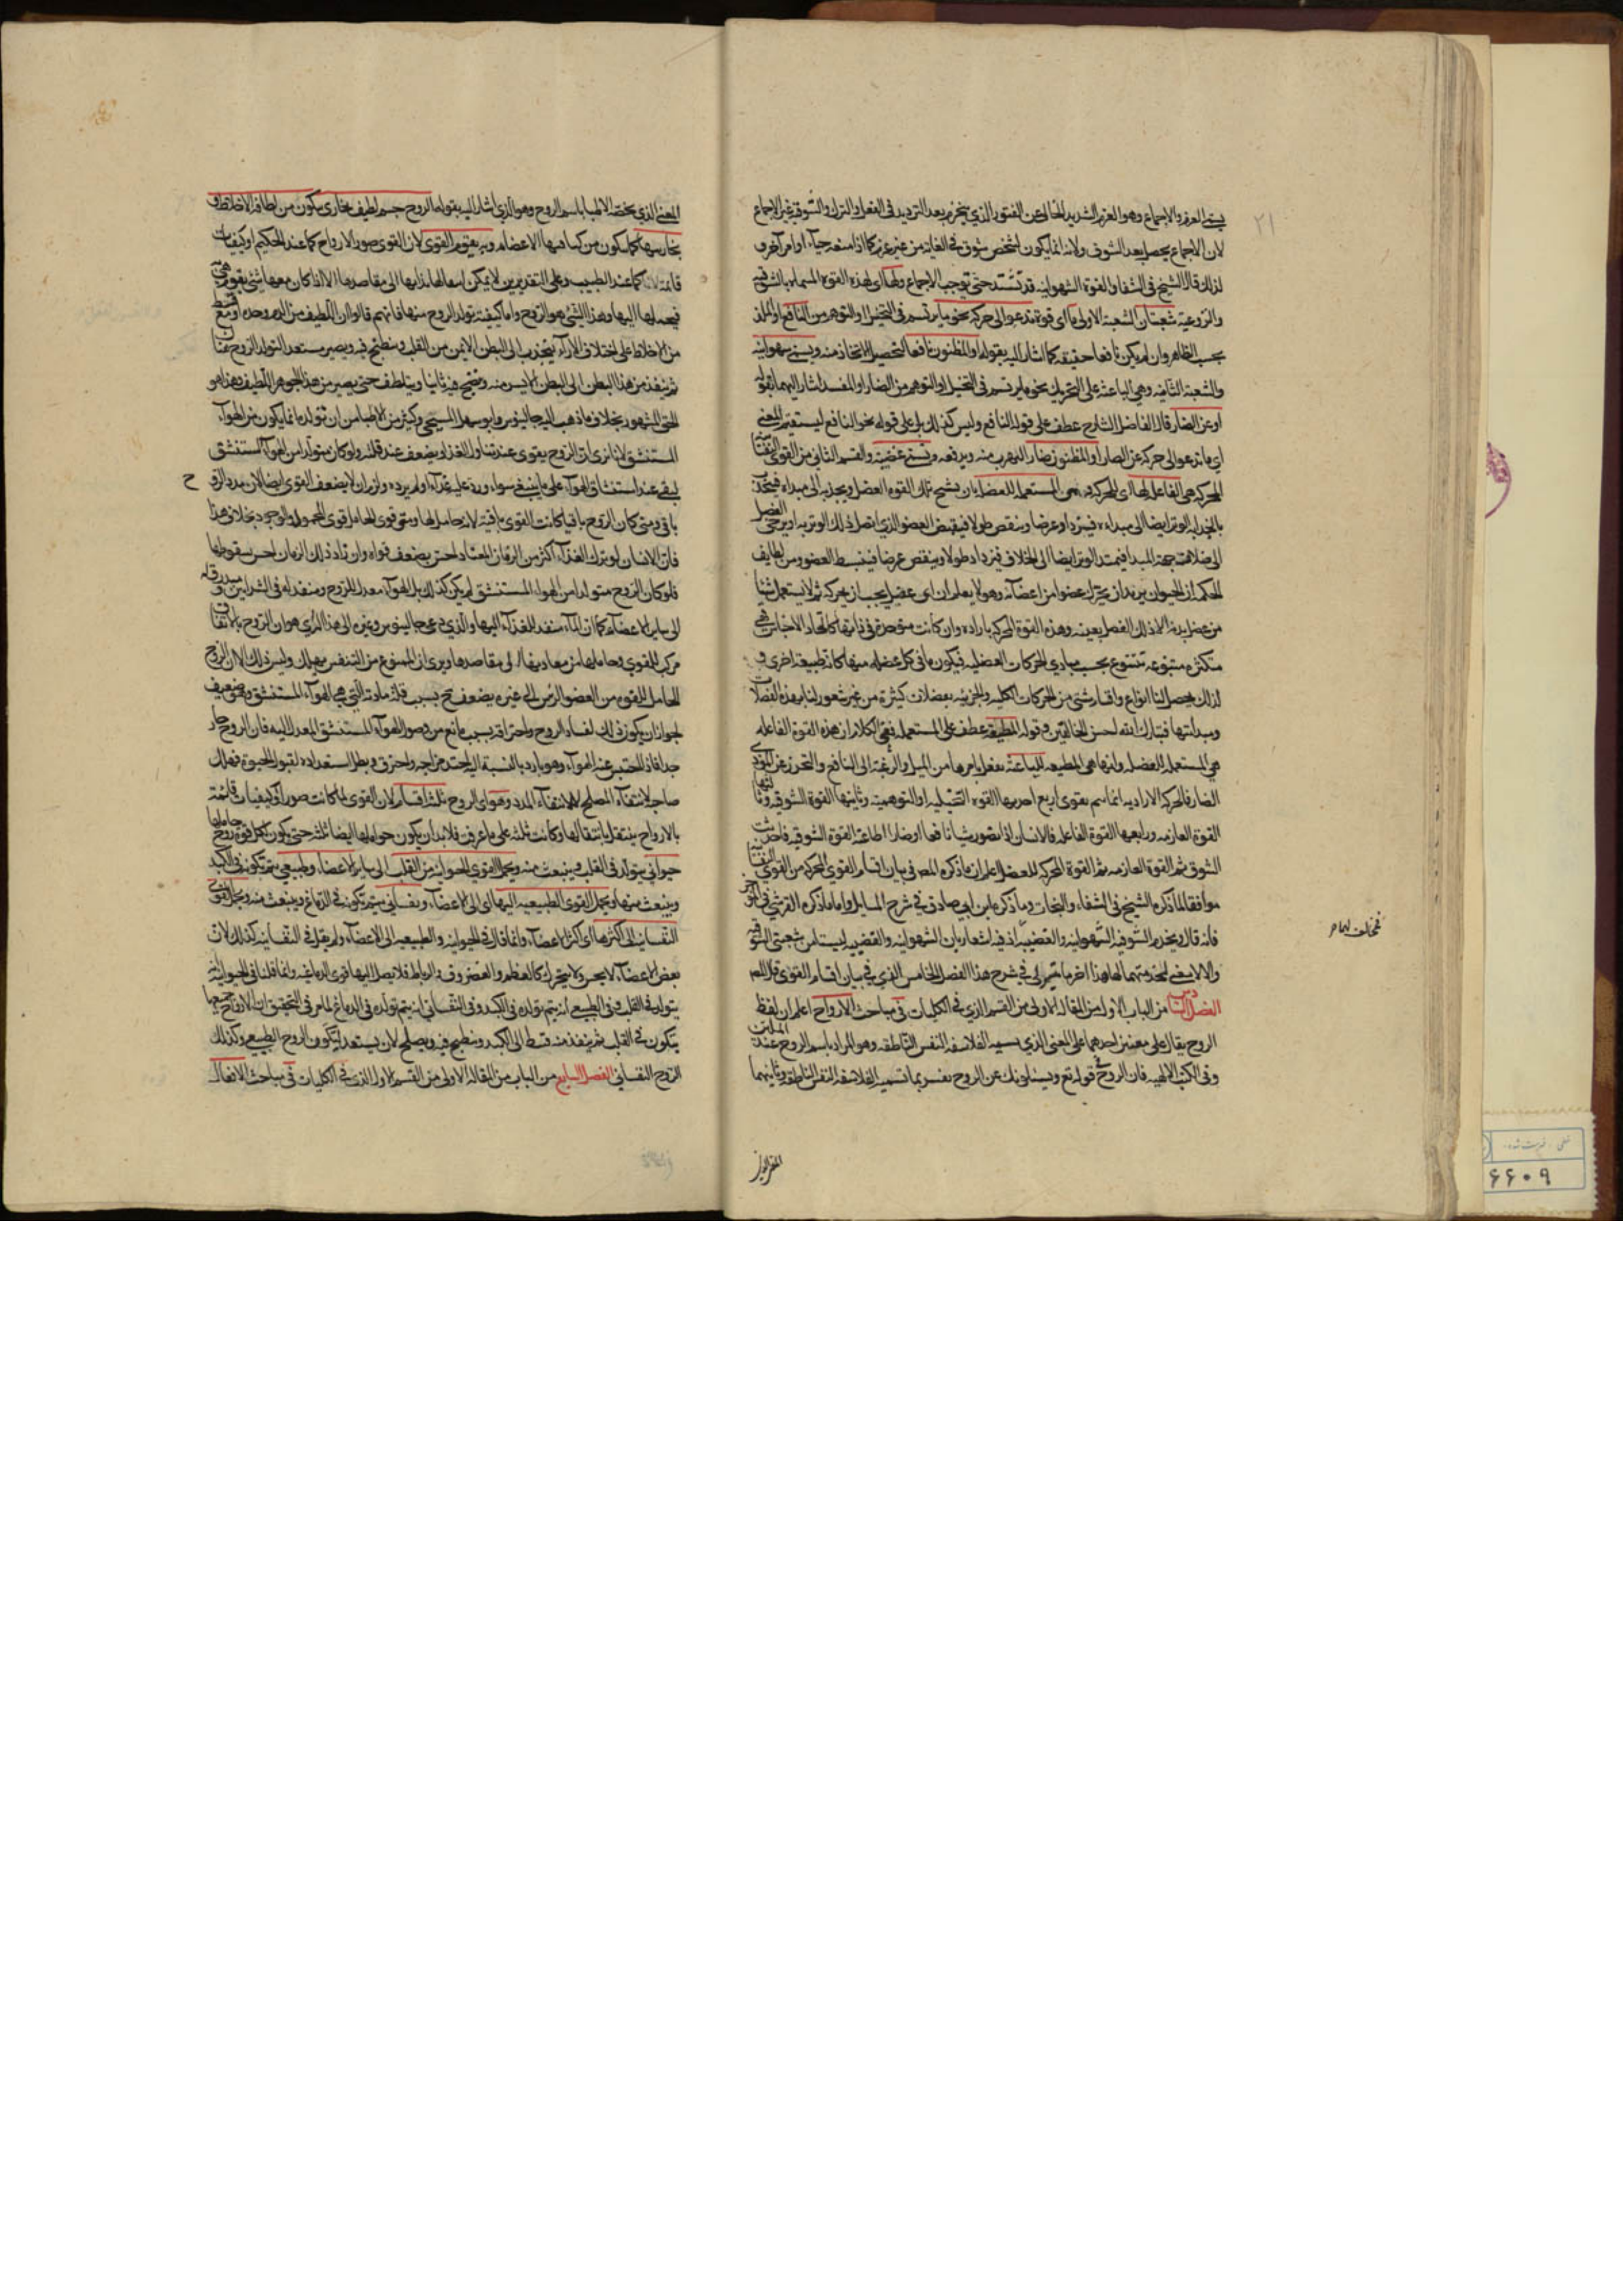 ٢١
يسمى العزم والاجماع وهو العزم الشديد الخالى عن الفتور الذي ينجزم بعد الترديد في الفعل والترك والشوقية غير الاجماع
لان الاجماع يحصل بعد الشوق ولانه انما يكون لشخص شوق في الغاية من غير عزم كما اذا منعه حياء او امر آخر و
لذلك قال الشيخ في الشفا والقوة الشهوانية قد تشتد حتى توجب الاجماع ولها اى لهذه القوة المسماة بالشوقية
والنزوعية شعبتان الشعبة الاولى ما اى قوة تدعو الى حركة نحو ما يرتسم في التخيل او التوهم من النافع او الملذ
بحسب الظاهر وان لم يكن نافعا حقيقة كما اشار اليه بقوله او المظنون نافعا لتحصيل الالتذاذ منه ويسمى شهوانية
والشعبة الثانية وهي الباعثة على التحريك نحو ما يرتسم في التخيل او التوهم من الضار او المفسد اشار اليهما بقوله
او عن الضار قال الفاضل الشارح عطف على قوله النافع وليس كذلك بل على قوله نحو النافع ليستقيم المعنى
اى ما تدعو الى حركة عن الضار او المظنون ضار للهرب منه ويدفعه وتسمى غضبية والقسم الثانى من القوى
المحركة هي الفاعلة لها اى للحركة وهى المستعملة للعضل بان يشنج تلك القوة العضل ويجذبه الى مبداءه فيتجذب
بانجذابه الوتر ايضا الى مبداءه فيزداد عرضا وينقص طولا فينقبض العضو الذي اتصل بذلك الوتر به او يرخى العضل
الى خلاف جهة المبدا فيمتد الوتر ايضا الى الخلاف فيزداد طولا وينقص عرضا فينبسط العضو ومن لطايف
الحكمة ان الحيوان يريد ان يحرك عضوا من اعضائه وهو لا يعلم ان اى عضل يجب ان يحركه ثم لا يستعمل شيئا
من عضل بدنه الا ذلك العضل بعينه وهذه القوة المحركة بارادة وان كانت متوحدة في ذاتها كاتحاد الاجناس فهى
متكثرة متنوعة تتنوع بحسب مبادي الحركات العضلية فيكون ما فى كل عضلة منها كانه طبيعة اخرى و
لذلك يحصل لنا انواع واقسام شتى من الحركات الكلية والجزئية بعضلات كثيرة من غير شعور لنا بهذه العضلات
ومبدأتها فتبارك الله احسن الخالقين وقوله المطيعة عطف على المستعملة فمعنى الكلام ان هذه القوة الفاعلة
هى المستعملة للعضلة وانها هى المطيعة للباعثة بفعل ما يامرها من الميل والرغبة الى النافع والتحرز عن الموذى
الضار فالحركة الارادية انما تتم بقوى اربع احديها القوة التخيلية او التوهمية وثانيتها القوة الشوقية وثالثتها
القوة العازمة ورابعها القوة الفاعلة فالانسان اذا تصور شيئا نافعا او ضارا اطاعته القوة الشوقية فاحدثت
الشوق ثم القوة العازمة ثم القوة المحركة للعضل اعلم ان ما ذكره المص في بيان اقسام القوى المحركة من القوى
موافق لما ذكره الشيخ في الشفاء والنجات وما ذكره ابن ابي صادق في شرح المسايل واما ما ذكره القرشى في الموجز
فانه قال ويخدم الشوقية الشهوانية والغضبية اذ فيه اشعار بان الشهوانية والغضبية ليستا من شعبتى الشوقية
والا لا معنى لخدمتهما لها هذا اخر ما تيسر لى في شرح هذا الفصل الخامس الذى في بيان اقسام القوى
الفصل السادس من الباب الاول من المقالة الاولى من القسم الذي في الكليات في مباحث الارواح اعلم ان لفظ
الروح يقال على معنيين احدهما على المعنى الذي يسميه الفلاسفة النفس الناطقة وهو المراد باسم الروح عند
وفى الكتب الالهية فان الروح في قوله تع ويسئلونك عن الروح يفسر بما تسميه الفلاسفة النفس الناطقة وثانيهما
المعنى الذي
المعنى الذي يخصه الاطبا باسم الروح وهو الذي اشار اليه بقوله الروح جسم لطيف بخارى يتكون من لطافة الاخلاط و
بخاريتها كما يتكون من كثافتها الاعضاء وبه يقوم القوى لان القوى صور الارواح كما عند الحكيم او كيفيات
قائمة بها كما عند الطبيب وعلى التقديرين لا يمكن انتقالها بذاتها الى مقاصدها الا اذا كان معها شئ يقوم هى به
فيحملها اليها وهذا الشئ هو الروح واما كيفية تولد الروح منها فانهم قالوا ان اللطيف من الدم وحده او مع قسط
من الاخلاط على اختلاف الاراء يتجذب الى البطن الايمن من القلب وينطبخ فيه ويصير مستعد التولد الروح
ثم ينفذ من هذا البطن الى البطن الايسر منه وينضج فيه ثانيا ويتلطف حتى يصير من هذا الجوهر اللطيف وهذا هو
الحق المشهور بخلاف ما ذهب اليه جالينوس وابو سهل المسيحى وكثير من الاطبا من ان تولده انما يكون من الهواء
المستنشق لانا نرى ان الروح يقوى عند تناول الغذاء ويضعف عند قلته ولو كان متولدا من الهواء المستنشق
لبقى عند استنشاق الهواء على ما ينبغي سواء ورد عليه غذاء او لم يرد ولزم ان لا يضعف القوى ايضا لان مدد الروح
باق ومتى كان الروح باقيا كانت القوى باقية لانه حامل لها ومتى قوى الحامل قوى المحمول والوجود بخلاف هذا
فان الانسان لو ترك الغذاء اكثر من الزمان المعتاد احس بضعف قواه وان زاد ذلك الزمان احس بسقوطها
فلو كان الروح متولدا من الهواء المستنشق لم يكن كذلك بل الهواء معدل للروح ومنفذ له في الشرايين
الى ساير الاعضاء كما ان الماء منفذ للغذاء اليها والذي دعى جالينوس وغيره الى هذا الراى هو ان الروح بالاتفاق
مركب للقوى وحاملها من معادنها الى مقاصدها ويرى ان الممنوع من التنفس يهلك وليس ذلك الا لان الروح
الحامل للقوة من العضو الرئيس الى غيره يضعف ح بسبب قلة مادته التى هى الهواء المستنشق وهو ضعيف
لجواز ان يكون ذلك لفساد الروح واحتراقه بسبب مانع من وصول الهواء المستنشق المعدل اليه فان الروح حار
جدا فاذا احتبس عنه الهواء وهو بارد بالنسبة اليه احتد مزاجه واحترق وبطل استعداده لقبول الحيوة فهلك
صاحبه لانتفاء المصلح لا لانتفاء المدد وهو اى الروح ثلثة اقسام لان القوى لما كانت صورا او كيفيات قائمة
بالارواح ينتقل بانتقالها وكانت ثلثة على ما عرفت فلا بد ان يكون حواملها ايضا ثلثة حتى يكون لكل قوة روح حاملها
حيوانى يتولد في القلب وينبعث منه ويحمل القوى الحيوانية من القلب الى ساير الاعضاء وطبيعى يتم تكونه في الكبد
وينبعث منها ويحمل القوى الطبيعية اليها اى الى الاعضاء ونفسانى يتم تكونه في الدماغ وينبعث منه ويحمل القوى
النفسانية الى اكثرها اى اكثر الاعضاء وانما قال في الحيوانية والطبيعية الى الاعضاء ولم يقل في النفسانية كذلك لان
بعض الاعضاء لا يحس ولا يتحرك كالعظم والغضروف والرباط فلا يصل اليها قوى الدماغية وانما قلنا في الحيوانية
يتولد في القلب وفى الطبيعى انه يتم تولده في الكبد وفى النفسانى انه يتم تولده في الدماغ لما مر في التحقيق ان الارواح جميعها
يتكون في القلب ثم ينفذ منه قسط الى الكبد وينطبخ فيه ويصلح لان يستعد ليتكون الروح الطبيعى وكذلك
الروح النفسانى الفصل السابع من الباب من المقالة الاولى من القسم الاول الذي في الكليات في مباحث الافعال
ح
٦٦٠٩